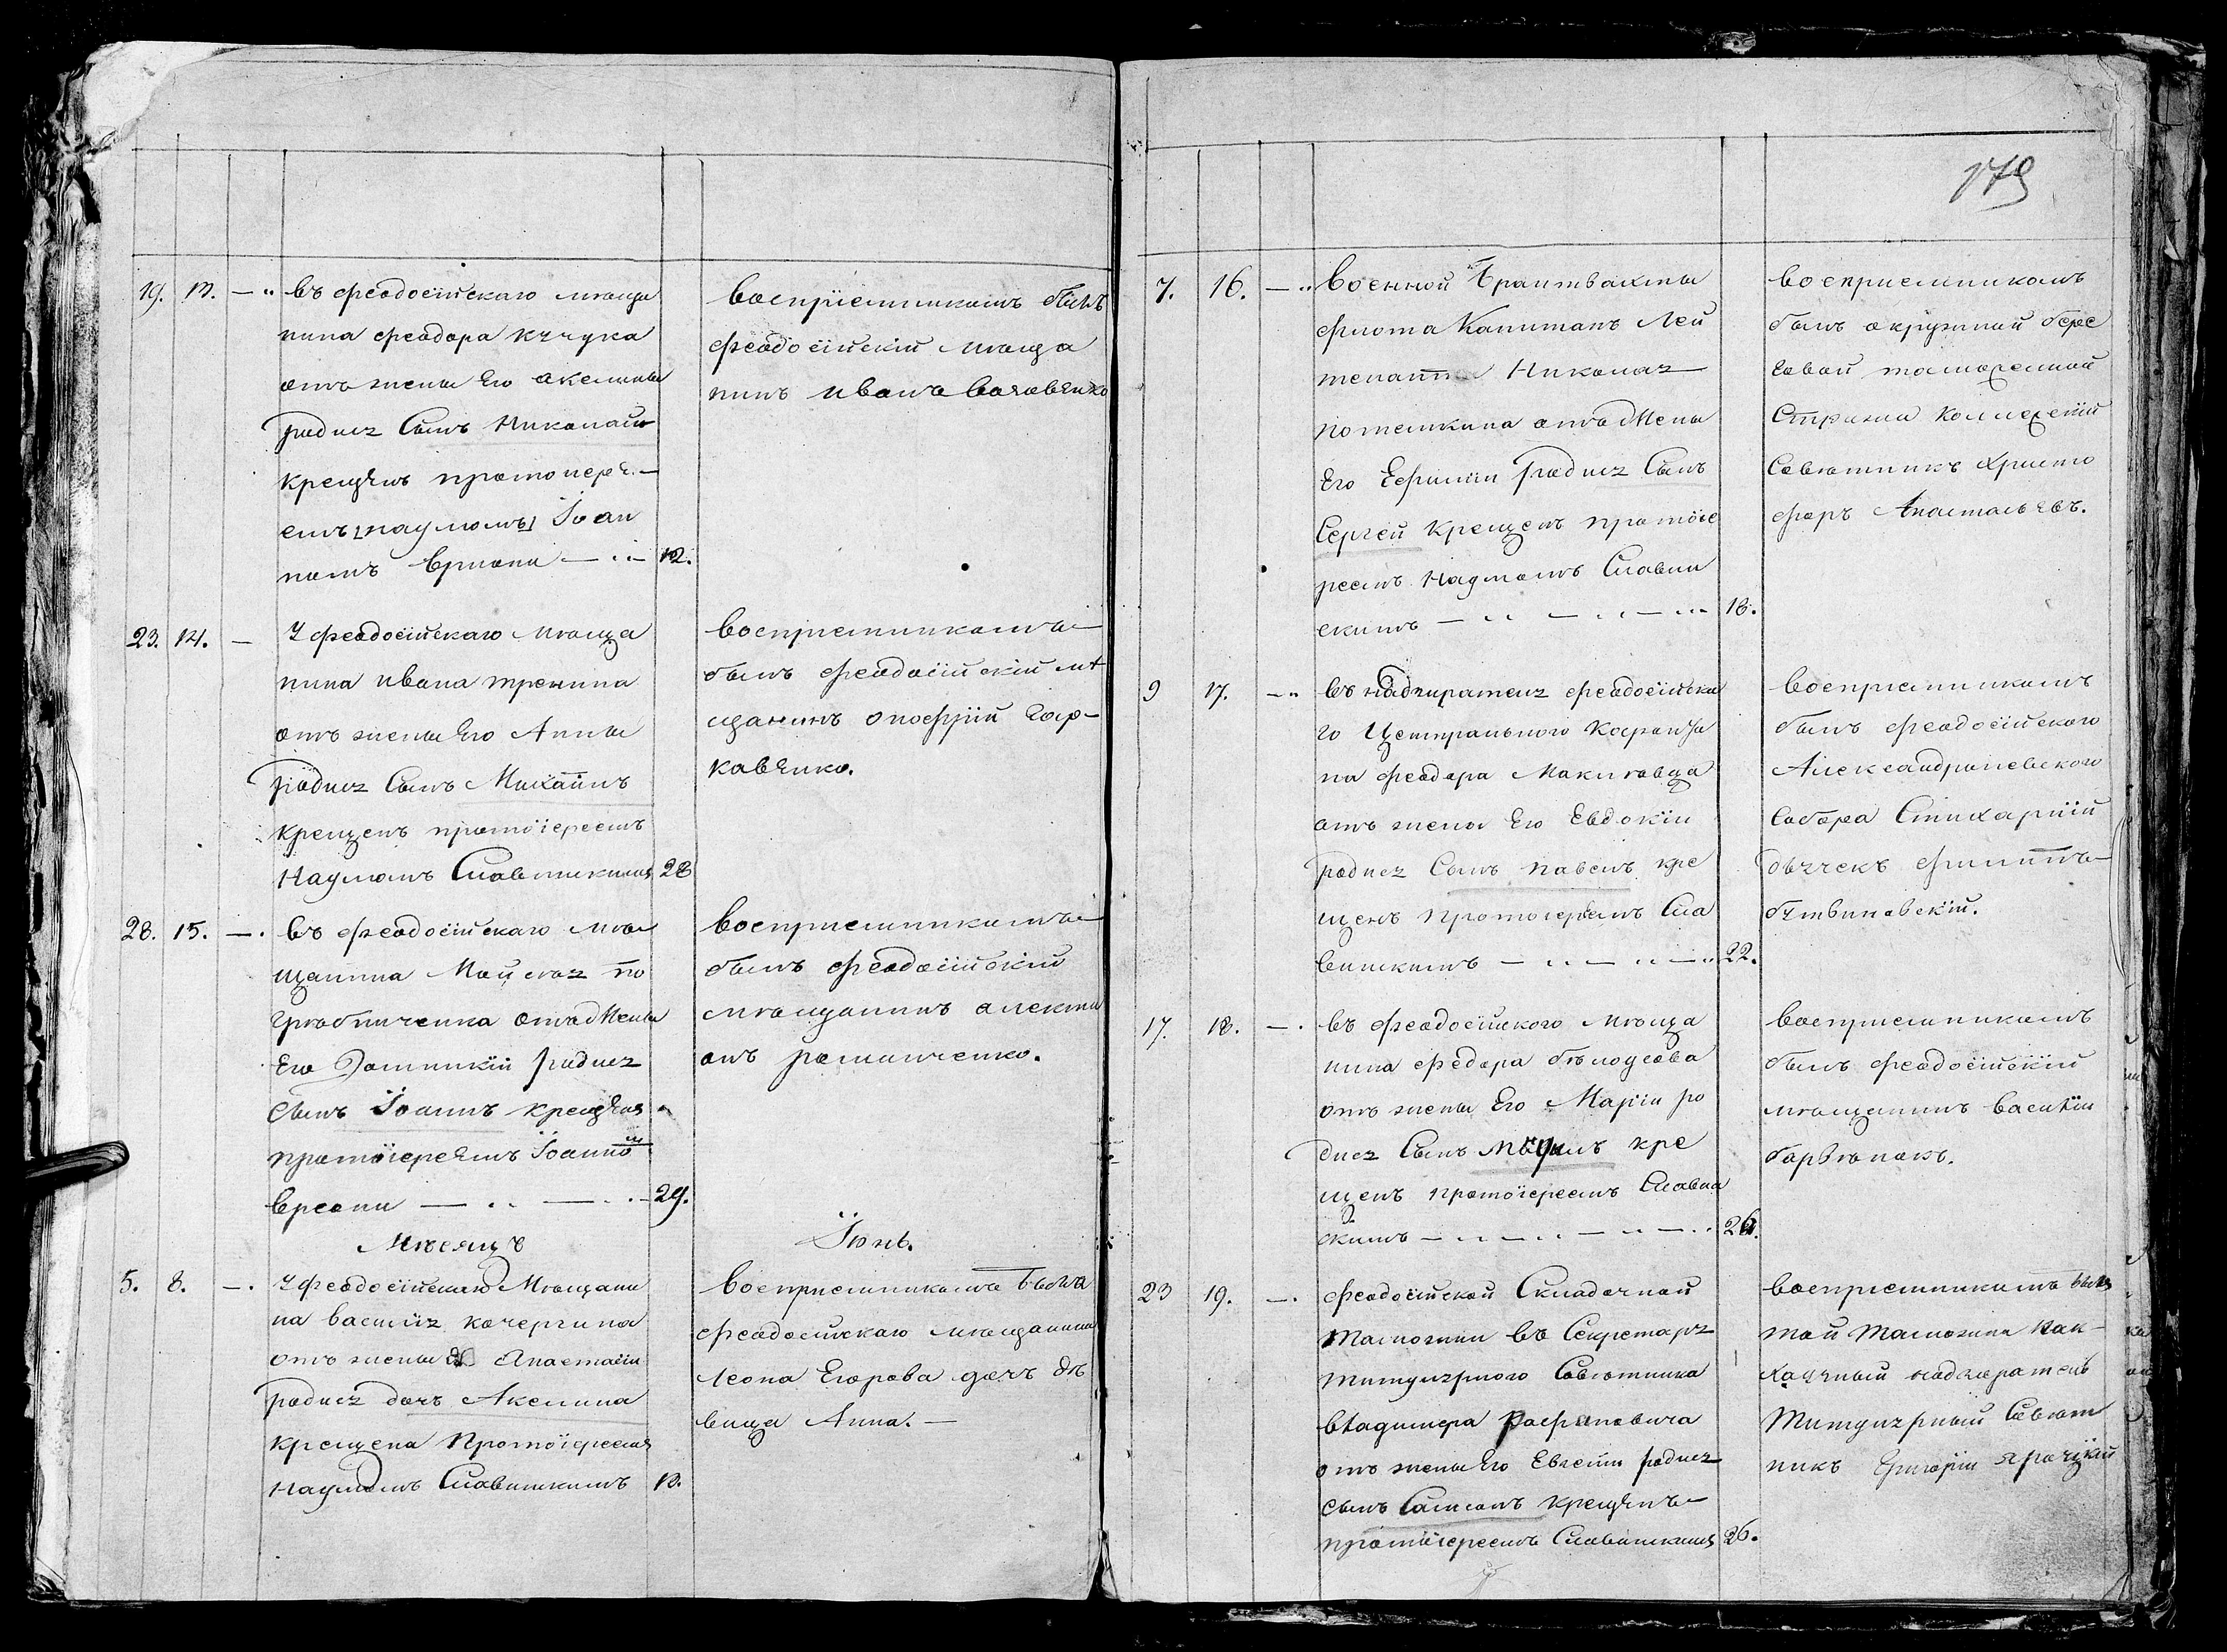 19. 13. — въ феодосійскаго мѣща
нина феодора кучука
отъ жены Его акелины
родися Сынъ Николай
крещенъ протоиере—
емъ наумомъ Іоан
номъ — 12.
воспріемникомъ былъ
феодосійскій мѣща
нинъ иванъ
23. 14. — У феодосійскаго мѣща
нина ивана тренина
отъ жены Его Анны
родися Сынъ Михаилъ
крещенъ протоіереемъ
Наумомъ Славинскимъ 28
воспріемникомъ—
былъ феодосійскій мѣ
щанинъ онофрій
кавенко.
28. 15. — въ феодосійскаго мѣ
щанина Моисея по
грѣбниченка отъ жены
Его Домникіи родися
Сынъ Іоаннъ крещенъ
протоіереемъ Іоанно
— 29.
воспріемникомъ—
былъ феодосійскій
мѣщанинъ
романченко.
Мѣсяцъ Іюнь.
5. 8. — У феодосійскаго Мѣщани
на василія кочергина
отъ жены Анастасіи
родися дочь Акелина
крещена Протоіереемъ
Наумомъ Славинскимъ 13.
воспріемникомъ была
феодосійскаго мѣщанина
леона Егорова дочь дѣ
вица Анна. —
179
7. 16. — военной Брантвахты
флота Капитанъ Лей
тенанта Николая
потемкина отъ жены
Его Ефиміи родися Сынъ
Сергей крещенъ протоіе
реемъ Наумомъ Славин
скимъ — 18.
воспріемникомъ
былъ окружный бере
говой таможенной
Стражи Коллежскій
Совѣтникъ Христо
форъ Анастасьевъ.
9 17. — въ надзирателя феодосійска
го Центральнаго Каранти
на феодора
отъ жены Его Евдокіи
родися Сынъ павелъ кре
щенъ протоіереемъ Сла
винскимъ — 22.
воспріемникомъ
былъ феодосійскаго
Александроневскаго
Собора Стихарный
дьячекъ филиппъ—
бутвиновскій.
17. 18. — въ феодосійского мѣща
нина федора бѣлоусова
отъ жены Его Маріи ро
дися Сынъ кре
щенъ протоіереемъ Славин
скимъ — 26.
воспріемникомъ
былъ феодосійскій
мѣщанинъ василій
23 19. — феодосійской Складочной
таможни въ Секретаря
титулярного Совѣтника
владимера рафановича
отъ жены Его Евгеніи родися
сынъ Самсонъ крещенъ—
протоіереемъ Славинскимъ 26.
воспріемникомъ былъ
той таможни пак-
хаузный надзиратель
титулярный Совѣт
никъ Григорій